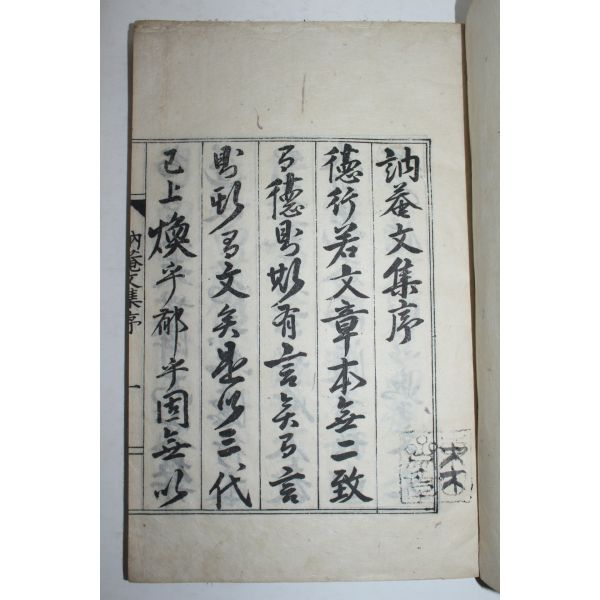 訥菴文集序
德行若文章本無二致
有德則必有言矣有言
則斯有文矣是以三代
已上煥乎郁乎固無以
訥菴文集序
一